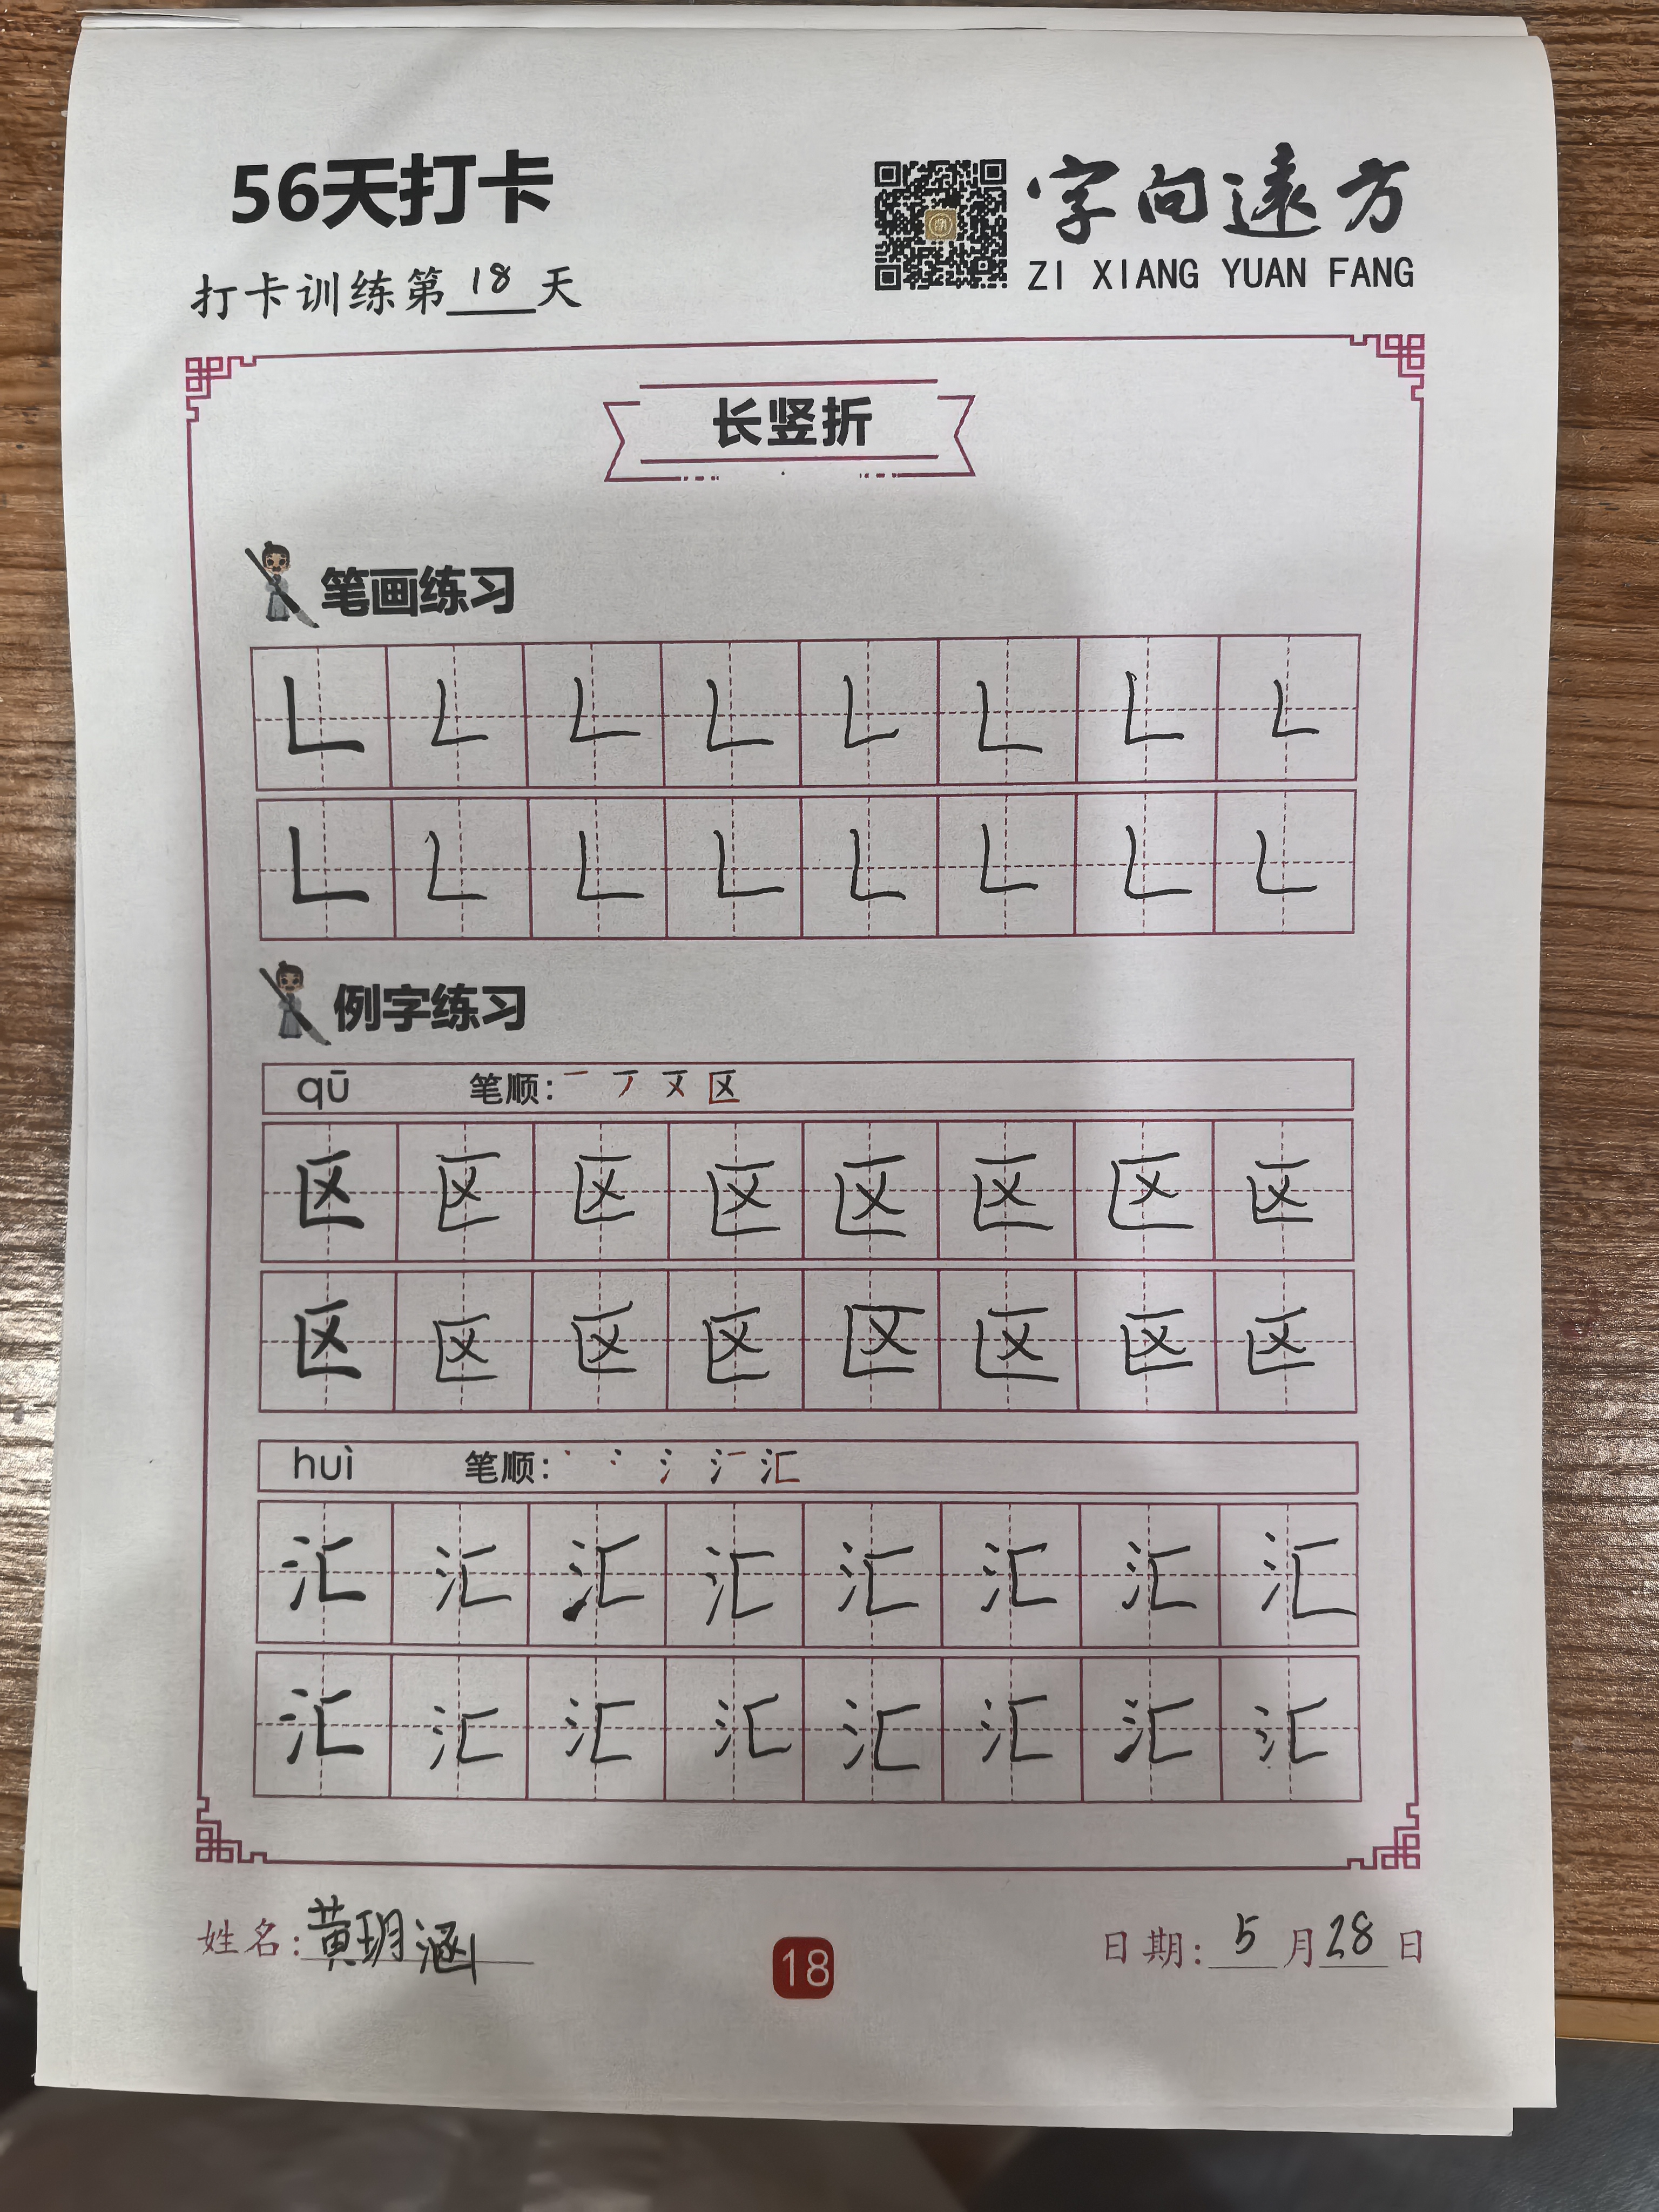 56天打卡
字向遠方
ZI XIANG YUAN FANG
打卡训练第18天
长竖折
笔画练习
例字练习
qū 笔顺: 区
区 区 区 区 区 区 区 区
区 区 区 区 区 区 区 区
huì 笔顺: 汇
汇 汇 汇 汇 汇 汇 汇 汇
汇 汇 汇 汇 汇 汇 汇 汇
姓名:黄玥涵
18
日期:5月28日